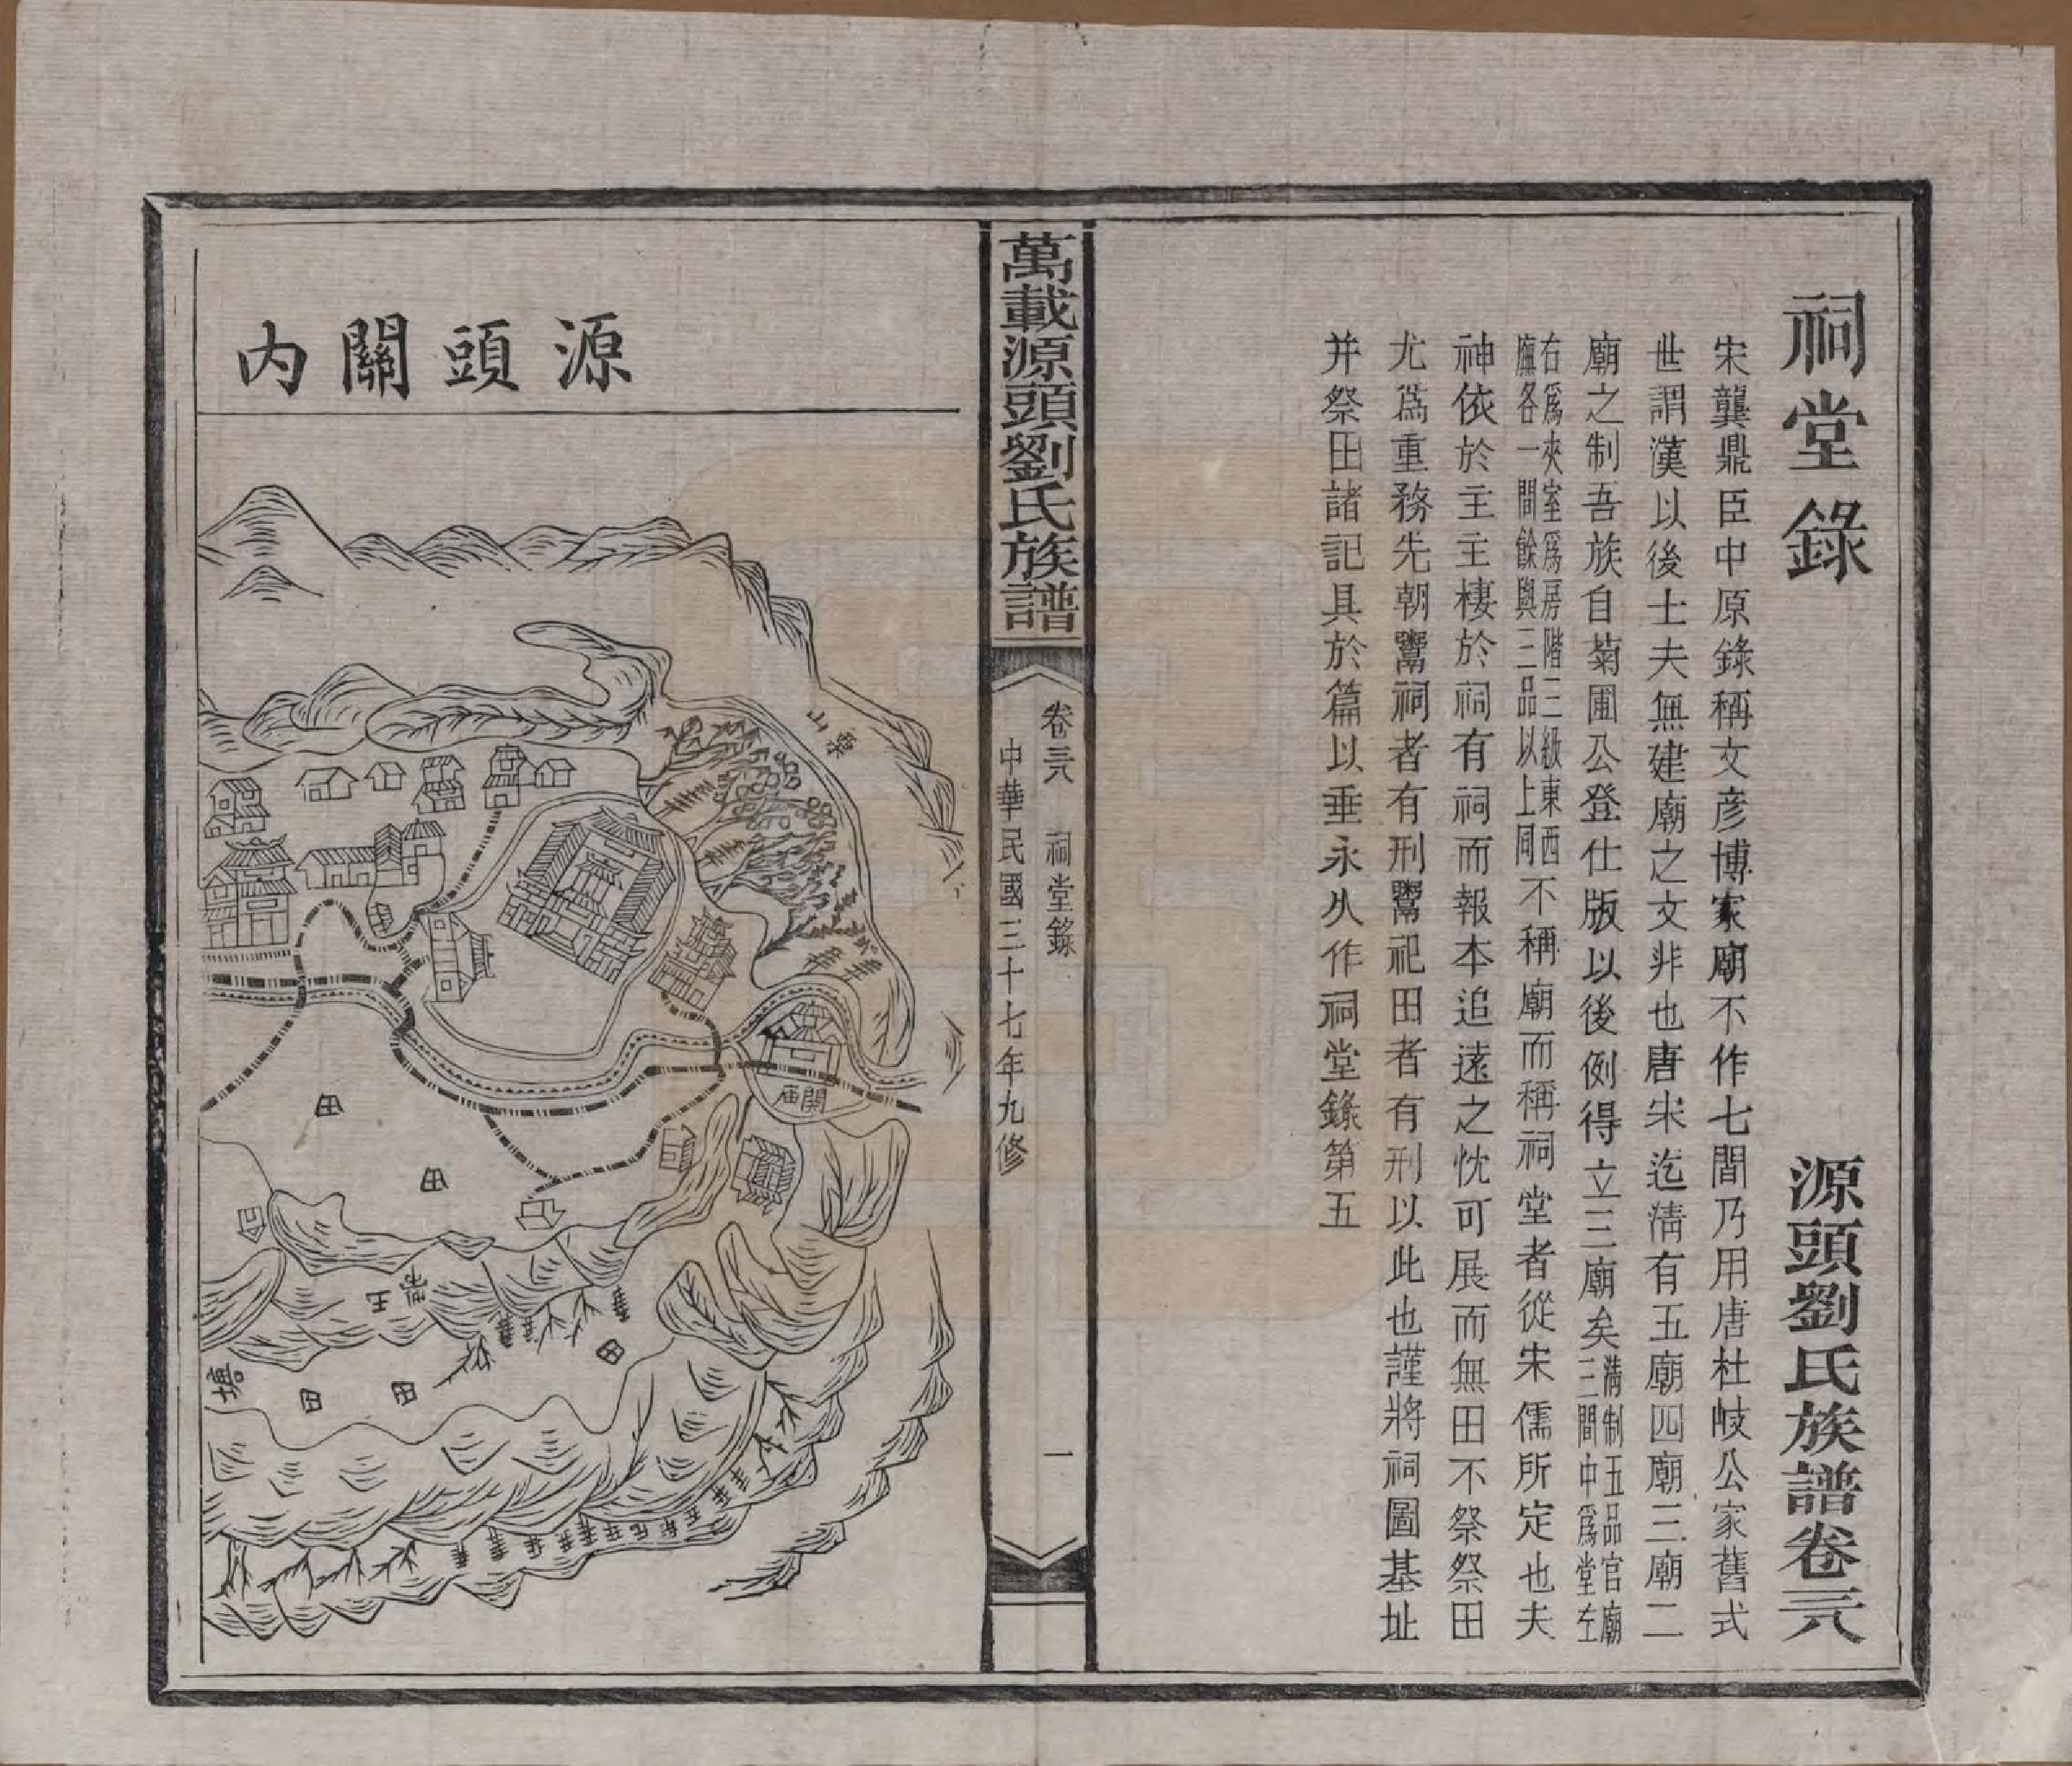 祠堂錄
源頭劉氏族譜卷三八
宋龔鼎臣中原錄稱文彦博家廟不作七間乃用唐杜岐公家舊式
世謂漢以後士夫無建廟之文非也唐宋迄清有五廟四廟三廟二
廟之制吾族自菊圃公登仕版以後例得立三廟矣清制五品官廟三間中爲堂左
右爲夾室爲房階三級東西廡各一間餘與三品以上同不稱廟而稱祠堂者從宋儒所定也夫
神依於主主棲於祠有祠而報本追遠之忱可展而無田不祭祭田
尤爲重務先朝鬻祠者有刑鬻祀田者有刑以此也謹將祠圖基址
并祭田諸記具於篇以垂永久作祠堂錄第五
萬載源頭劉氏族譜
卷三八 祠堂錄
一
中華民國三十七年九修
源頭關內
栗山
開庙
田
田
田
田
田
塘